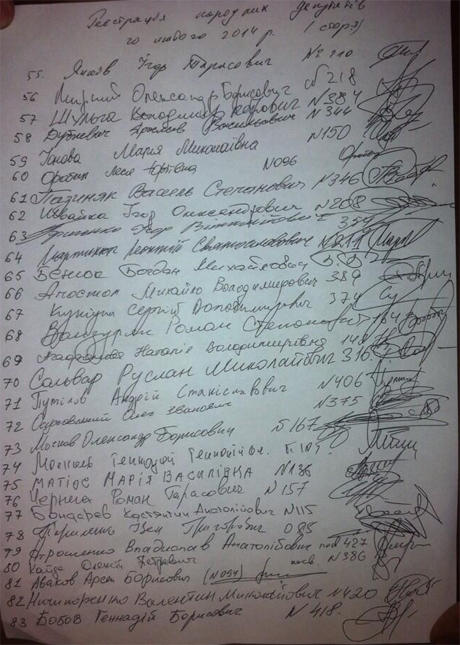 Реєстрація народних депутатів
20 лютого 2014 р. (стор 3)
55. Янків Ігор Тарасович № 310
56 Мирний Олександр Борисович № 218
57 Шульга Володимир № 384
58 Дубневич Васильович № 344
59 Іонова Марія Миколаївна №150
60 Оробец Леся Юріївна №096
61 Пазиняк Василь Степанович №346
62 Швайка Ігор Олександрович №208
63 Ігор 354
64 Мартинюк Леонтій Святославович №211
65 Бенюк Богдан Михайлович
66 Апостол Михайло Володимирович 389
67 Куніцин Сергій Володимирович 374
68 Роман Степанович 164
69 Наталія Володимирівна
70 Сольвар Руслан Миколайович 316
71 Путілов Андрій Станіславович №406
72 Осуховський Олег Іванович №375
73 Мочков Олександр Борисович №167
74 Москаль Геннадій Геннадійов.
75 Матіос Марія Василівка №136
76 Чернега Роман Тарасович №157
77 Бондарєв Костянтин Анатолійович №115
78 Григорович 085
79 Атрошенко Владислав Анатолійович 427
80 Олексій Петрович № 386
81 Аваков Арсен Борисович (№094)
82 Ничипоренко Валентин Миколайович №420
83 Бобов Геннадій Борисович №418.